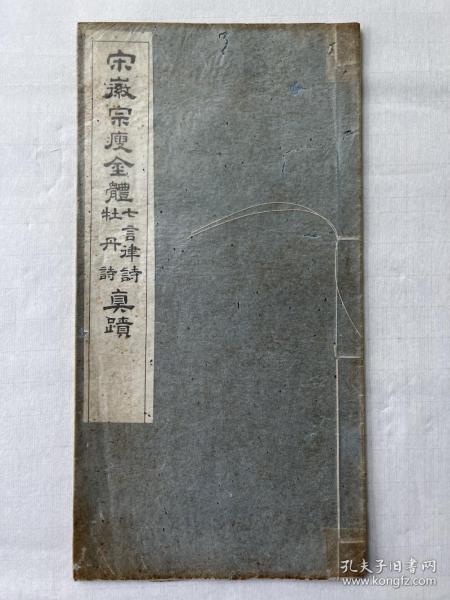 宋徽宗瘦金體
七言律詩
牡丹詩
真蹟
孔夫子旧书网
www.kongfz.com